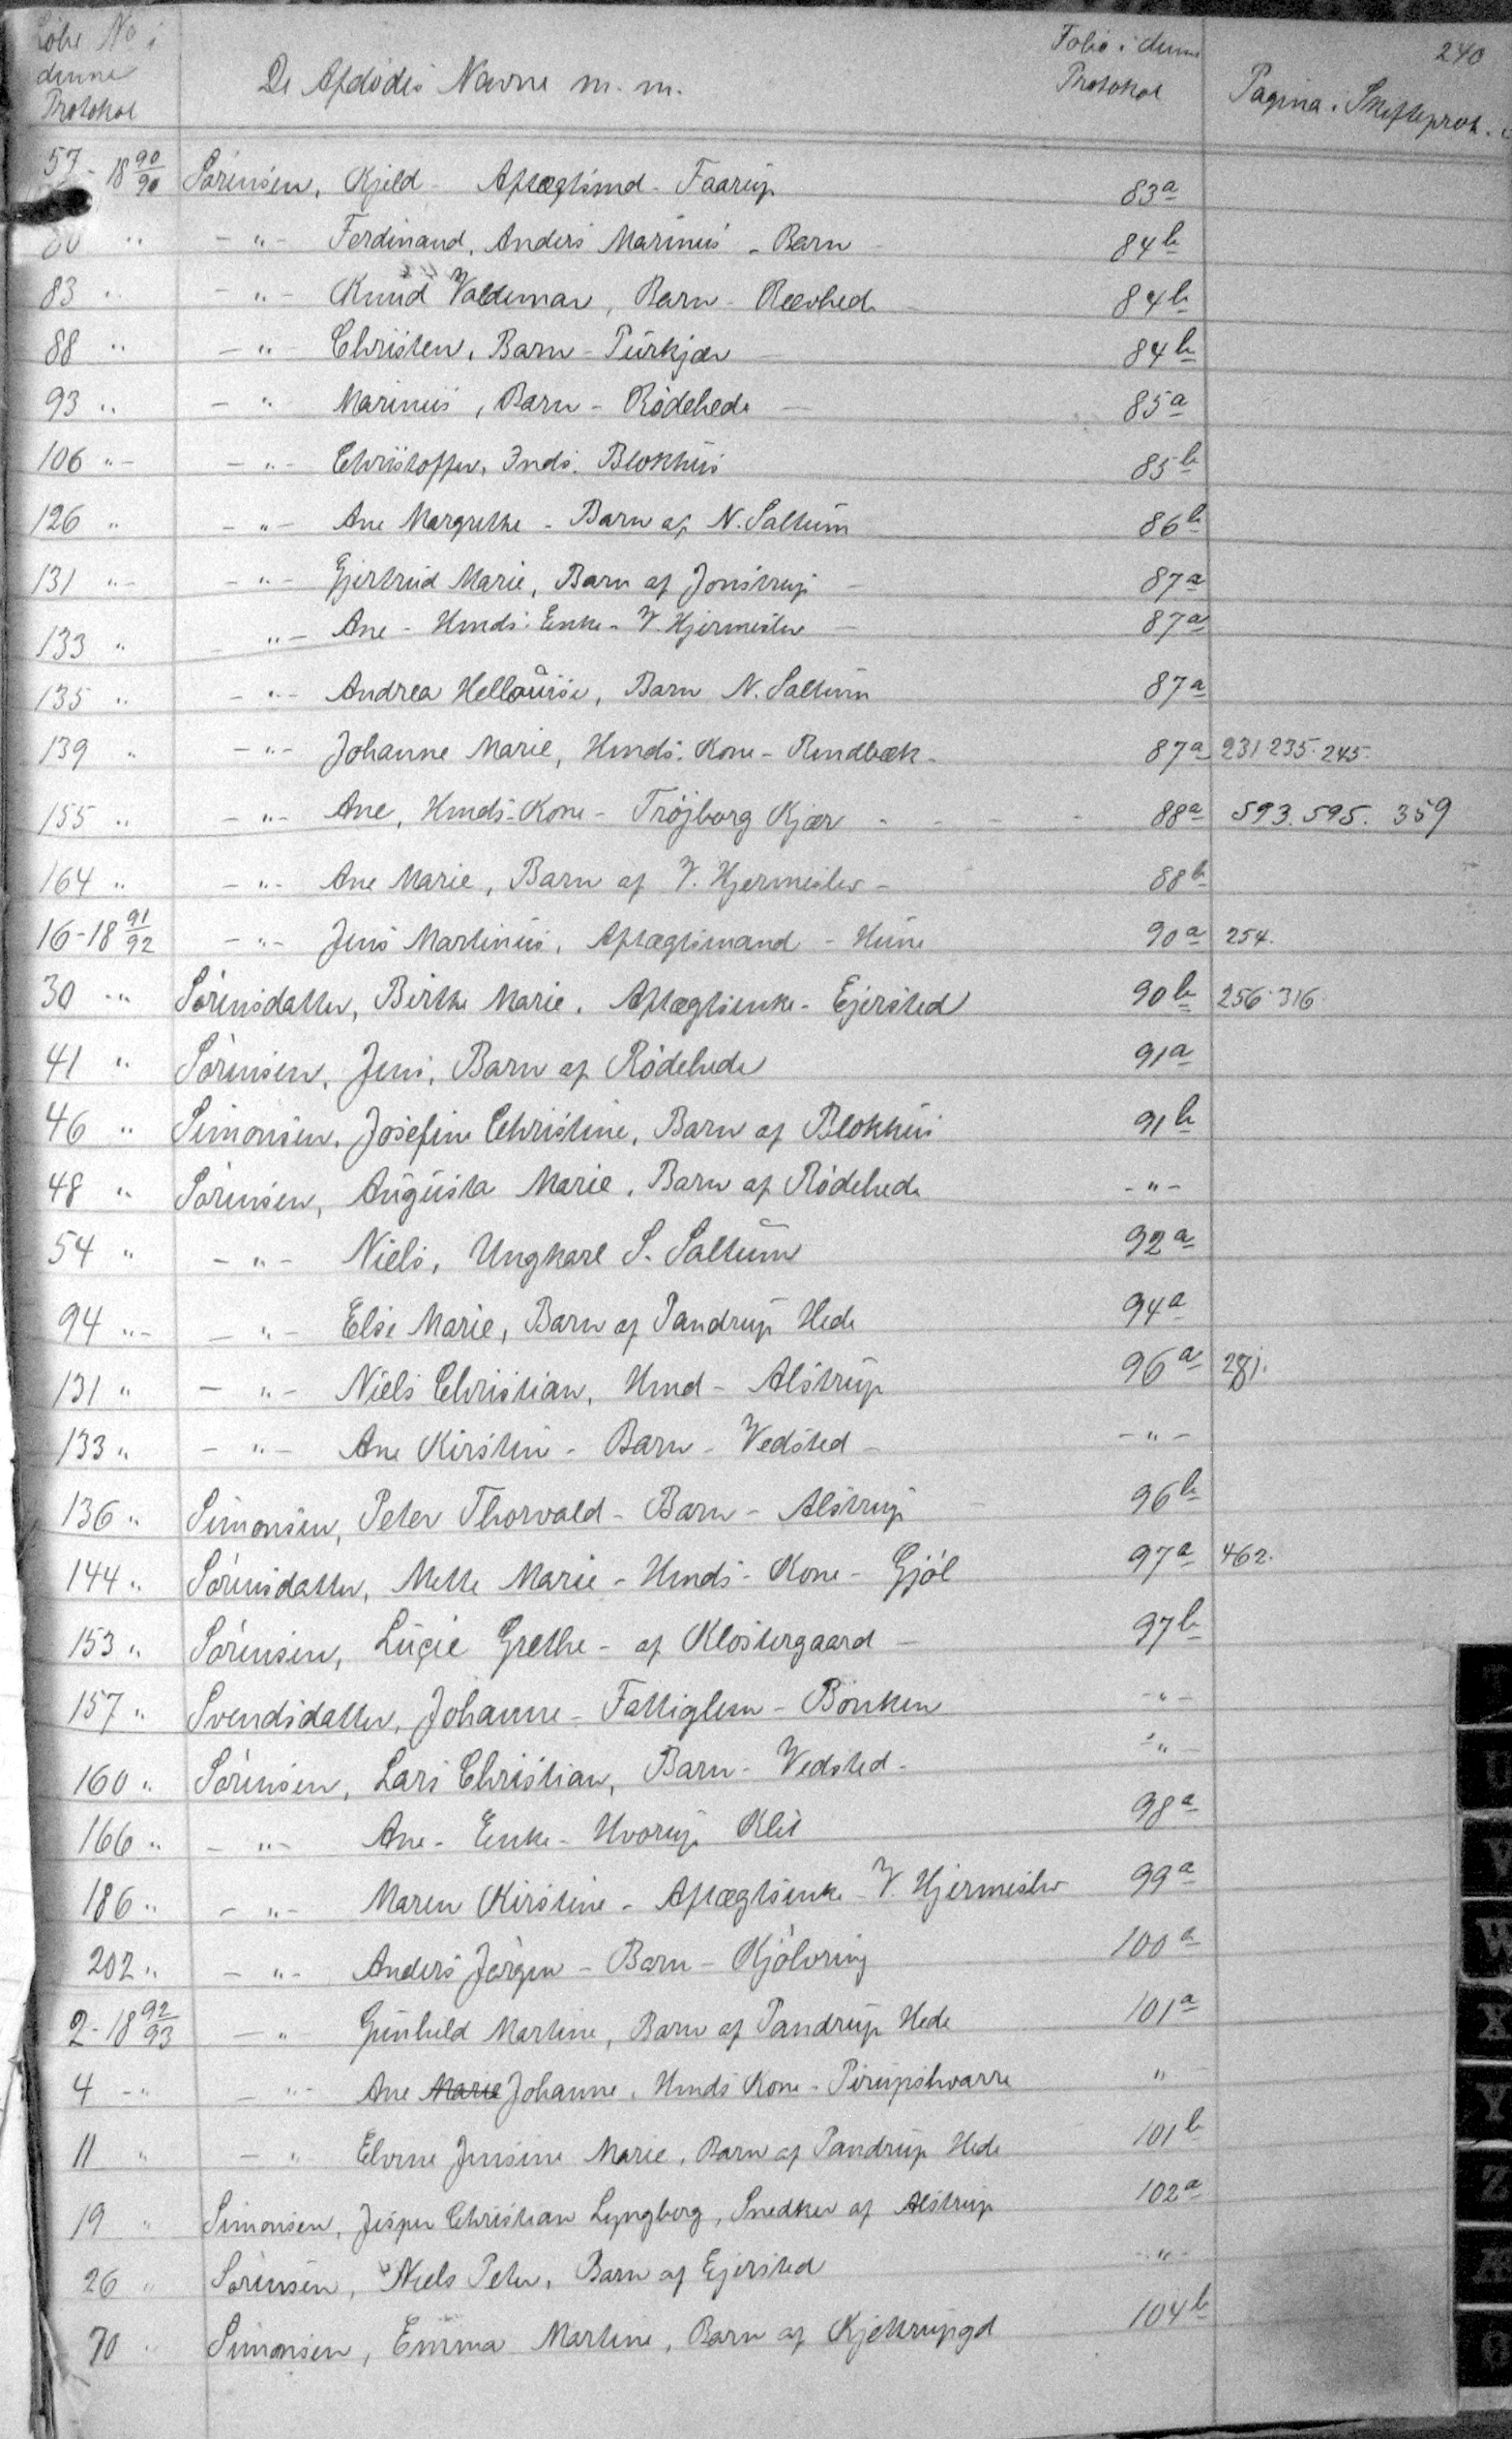 Löbe No i denne Protokol | De Afdödes Navne m. m. | Folio i denne Protokol | Pagina i Skifteprot. | 240
57 - 18 90/90 Sörensen, Kjeld - Aftægtsmd - Faarup 83a
80 " - " - Ferdinand, Anders Marinus - Barn 84b
83 " - " - Knud Valdemar, Barn - Rævhede 84b
88 " - " - Christen, Barn - Purkjær 84b
93 " - " - Marinus, Barn - Rödehede 85a
106 " - - " - Christoffer, Inds. Blokhus 85b
126 " - " - Ane Margrethe - Barn af N. Saltum 86b
131 " - - " - Gjertrud Marie, Barn af Jonstrup 87a
133 " - " - Ane - Hmds. Enke - V. Hjermeslev 87a
135 " - " - Andrea Hellouise, Barn N. Saltum 87a
139 " - " - Johanne Marie, Hmds. Kone - Rendbæk - 87a 231. 235. 245.
155 " - " - Ane, Hmds. Kone - Tröjborg Kjær - - - - 88a 593. 595. 359
164 " - " - Ane Marie, Barn af V. Hjermeslev - 88b
16 - 18 91/92 - " - Jens Martinus, Aftægtsmand - Hune 90a 254.
30 - " Sörensdatter, Birthe Marie, Aftægtsenke - Ejersted 90b 256. 316.
41 " Sörensen, Jens, Barn af Rödehede 91a
46 " Simonsen, Josefine Christine, Barn af Blokhus 91b
48 " Sörensen, Augusta Marie, Barn af Rödehede - " -
54 " - " - Niels, Ungkarl S. Saltum 92a
94 " - - " - Else Marie, Barn af Pandrup Hede 94a
131 " - " - Niels Christian, Hmd - Alstrup 96a 281.
133 " - " - Ane Kirstine - Barn - Vedsted - - " -
136 " Simonsen, Peter Thorvald - Barn - Alstrup 96b
144 " Sörensdatter, Mette Marie - Hmds - Kone - Gjöl 97a 462.
153 " Sörensen, Lucie Grethe - af Klostergaard - 97b
157 " Svendsdatter, Johanne - Fattiglem - Bonken - " -
160 " Sörensen, Lars Christian, Barn - Vedsted - - " -
166 " - " - Ane - Enke - Hvorup Klit 98a
186 " - " - Maren Kirstine - Aftægtsenke - V. Hjermeslev 99a
202 " - " - Anders Jörgen - Barn - Kjölvring 100a
2 - 18 92/93 - " Gunhild Martine, Barn af Pandrup Hede 101a
4 - " - " - Ane Marie Johanne, Hmds Kone - Pirupshvarre "
11 " - " Elvine Jensine Marie, Barn af Pandrup Hede 101b
19 " Simonsen, Jesper Christian Lyngberg, Snedker af Alstrup 102a
26 " Sörensen, Niels Peter, Barn af Ejersted - " -
70 " Simonsen, Emma Martine, Barn af Kjettrupgd 104b
U
V
W
X
Y
Z
Æ
Ö